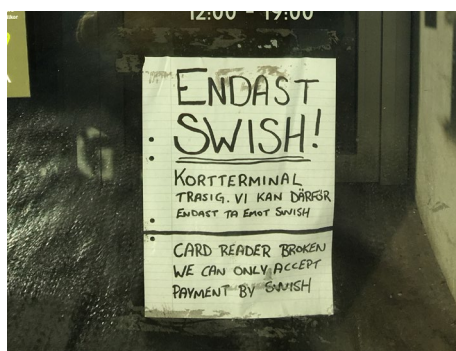 12:00 - 19:00
ENDAST
SWISH!
KORTTERMINAL
TRASIG. VI KAN DÄRFÖR
ENDAST TA EMOT SWISH
CARD READER BROKEN
WE CAN ONLY ACCEPT
PAYMENT BY SWISH